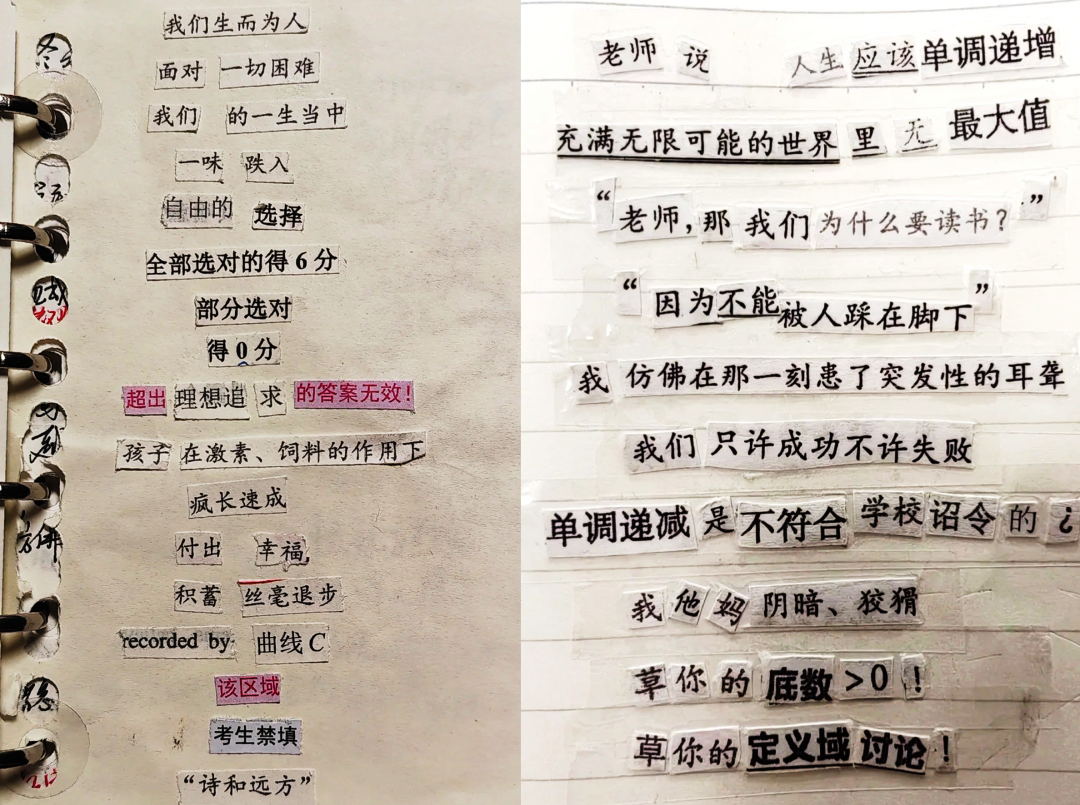 我们生而为人
面对 一切困难
我们 的一生当中
一味 跌入
自由的 选择
全部选对的得6分
部分选对
得0分
超出 理想追求 的答案无效！
孩子 在激素、饲料的作用下
疯长速成
付出 幸福,
积蓄 丝毫退步
recorded by 曲线C
该区域
考生禁填
“诗和远方”
老师 说 人生 应该 单调递增
充满无限可能的世界 里 无 最大值
“老师,那 我们 为什么要读书？”
“因为不能被人踩在脚下”
我 仿佛在那一刻患了突发性的耳聋
我们 只许成功不许失败
单调递减 是 不符合 学校 诏令 的 ¿
我 他 妈 阴暗、狡猾
草 你 的 底数 >0 ！
草 你的 定义域 讨论！